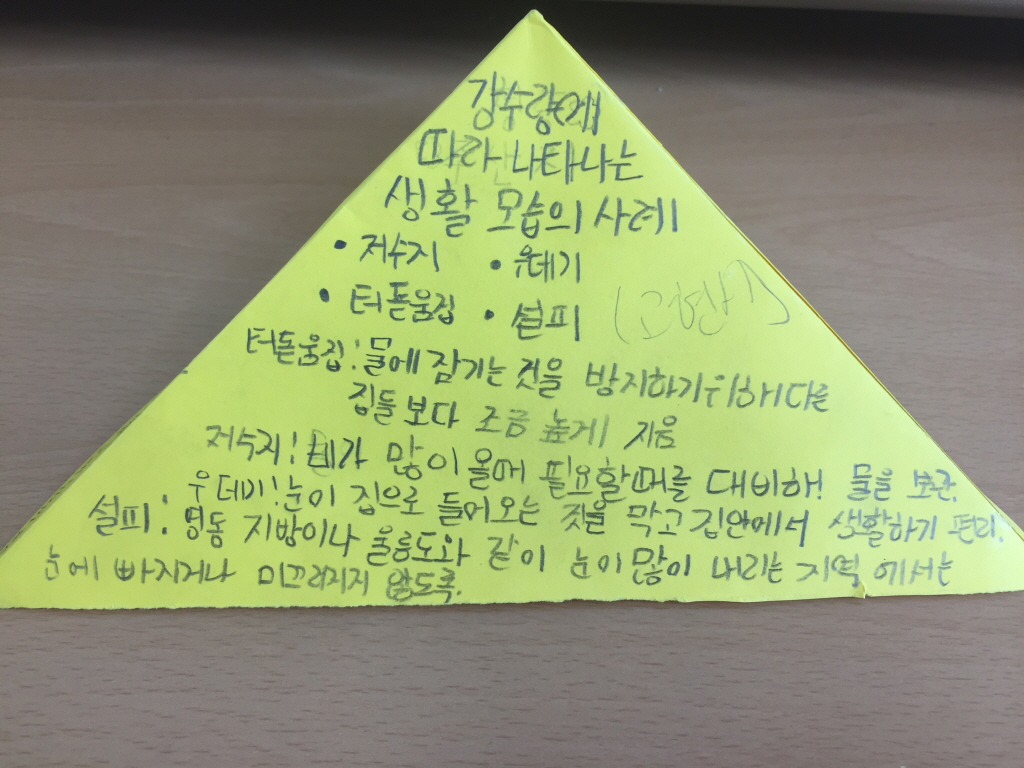 강수량에
따라 나타나는
생활 모습의 사례
• 저수지 • 우데기
• 터돋움집 • 설피
터돋움집: 물에 잠기는 것을 방지하기위해다른
집들보다 조금 높게 지음
저수지: 비가 많이 올때 필요할때를 대비해 물을 보관.
우데기: 눈이 집으로 들어오는 것을 막고 집안에서 생활하기 편리.
설피: 영동 지방이나 울릉도와 같이 눈이많이 내리는 지역에서는
눈에 빠지거나 미끄러지지 않도록.